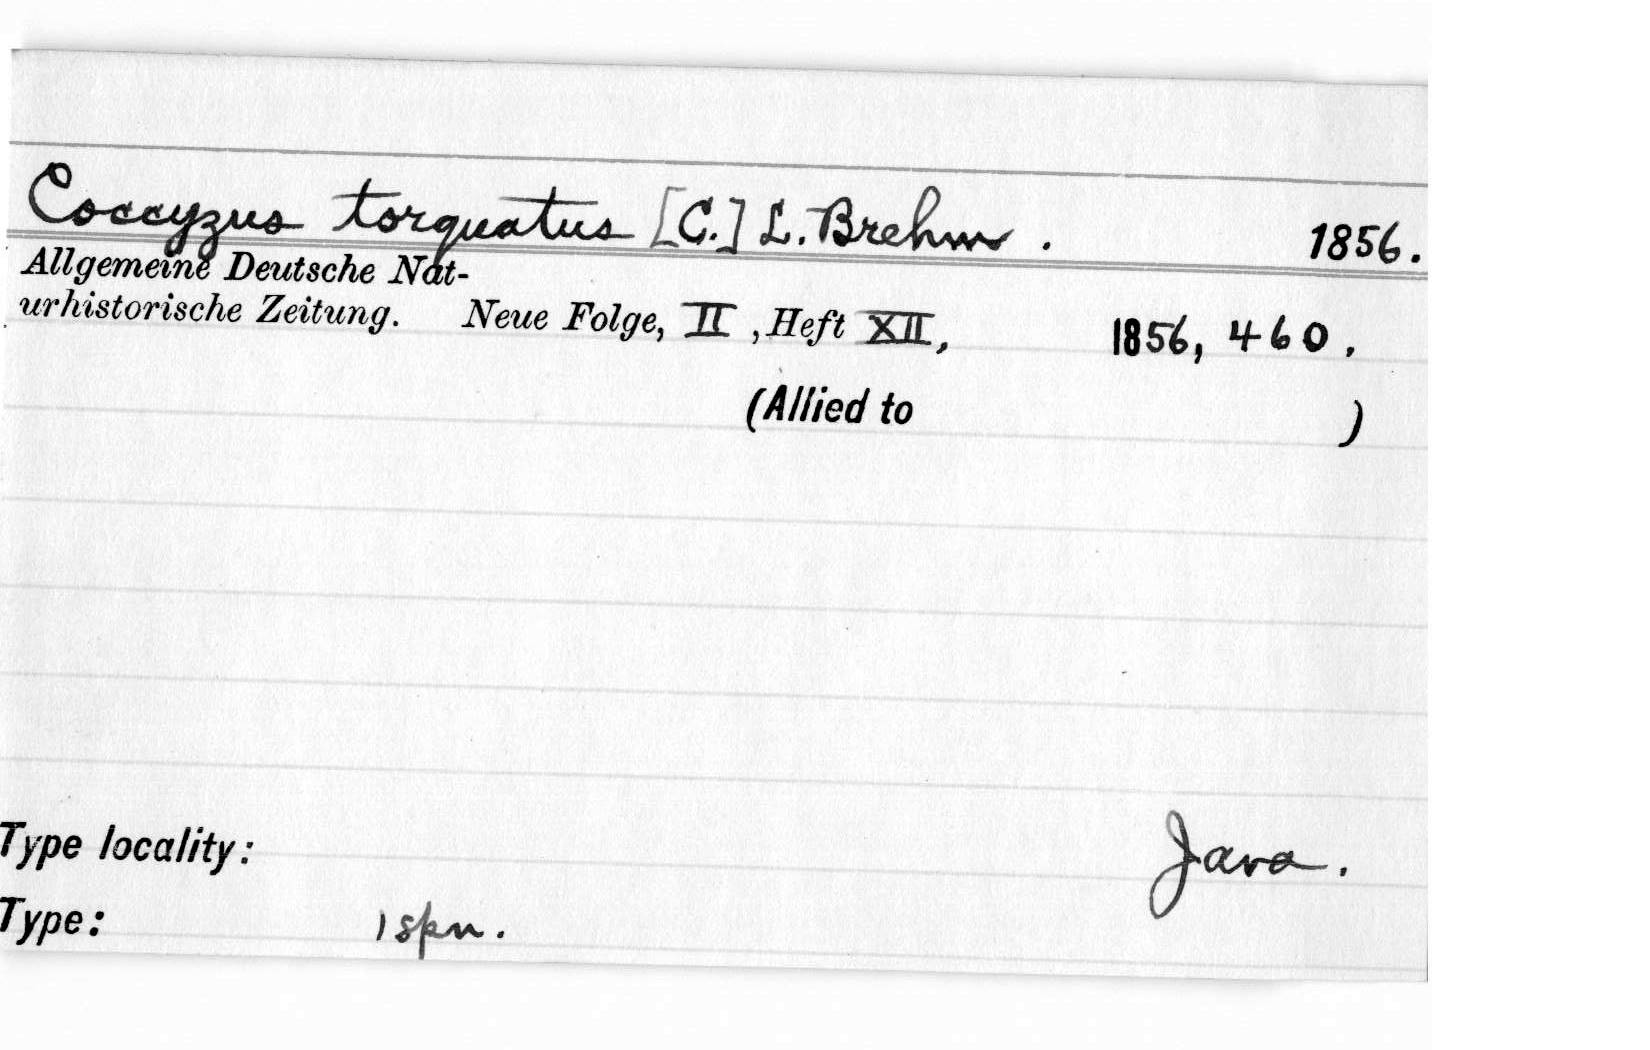 Coccyzus torquatus [C.] L. Brehm. 1856.
Allgemeine Deutsche Nat-
urhistorische Zeitung. Neue Folge, II, Heft XII, 1856, 460.
(Allied to )
Type locality: Java.
Type: 1 spn.